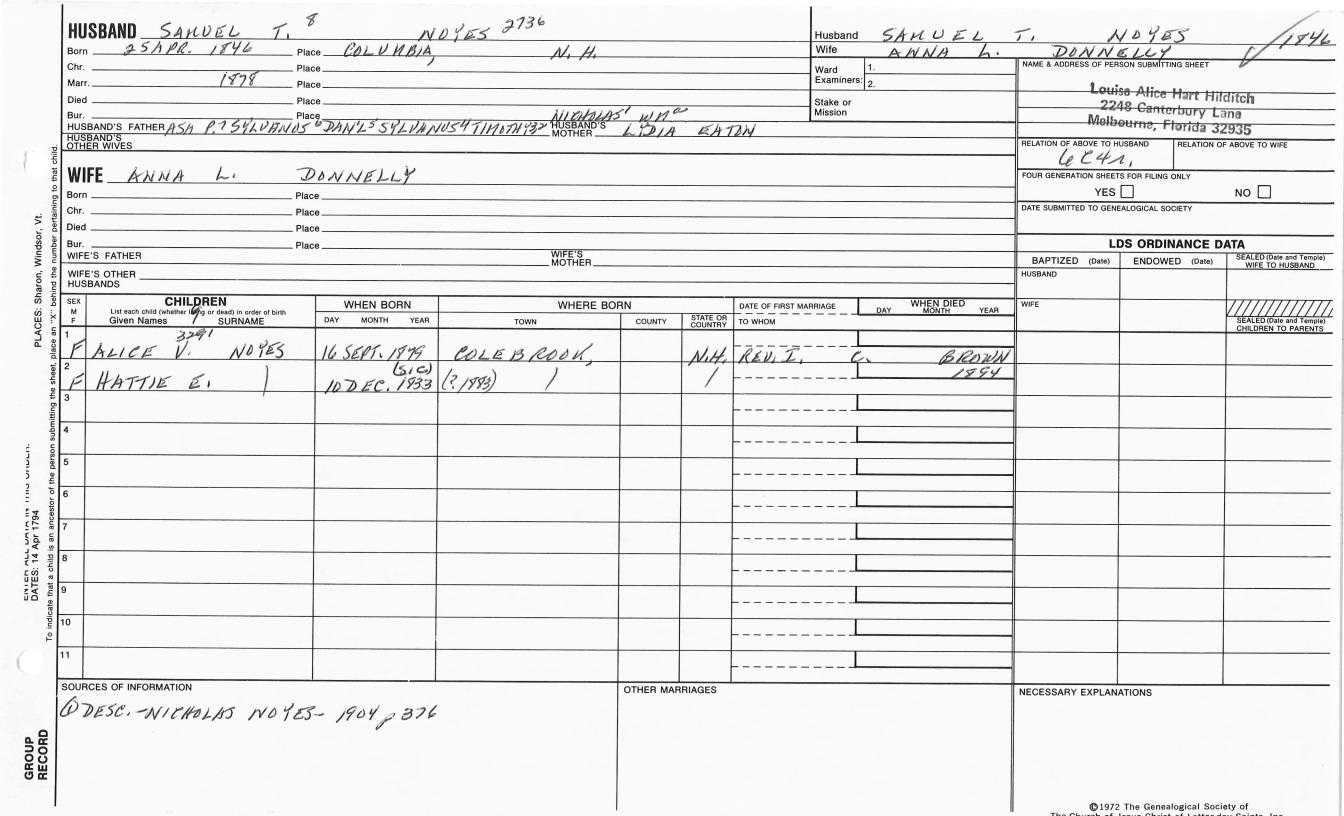 HUSBAND SAMUEL T. 8 NOYES 2736
Born 25 APR. 1846 Place COLUMBIA, N.H.
Chr. Place
Marr. 1878 Place
Died Place
Bur. Place NICHOLAS' WMª
HUSBAND'S FATHER ASA P.7 SYLVANUS6 DAN'L5 SYLVANUS4 TIMOTHY32 HUSBAND'S MOTHER LYDIA EATON
HUSBAND'S OTHER WIVES
WIFE ANNA L. DONNELLY
Born Place
Chr. Place
Died Place
Bur. Place
WIFE'S FATHER WIFE'S MOTHER
WIFE'S OTHER HUSBANDS
Husband SAMUEL T. NOYES 1846
Wife ANNA L. DONNELLY
Ward Examiners: 1.
2.
Stake or Mission
NAME & ADDRESS OF PERSON SUBMITTING SHEET
Louise Alice Hart Hilditch
2248 Canterbury Lane
Melbourne, Florida 32935
RELATION OF ABOVE TO HUSBAND RELATION OF ABOVE TO WIFE
6C4r.
FOUR GENERATION SHEETS FOR FILING ONLY
YES NO
DATE SUBMITTED TO GENEALOGICAL SOCIETY
LDS ORDINANCE DATA
BAPTIZED (Date) ENDOWED (Date) SEALED (Date and Temple) WIFE TO HUSBAND
HUSBAND
WIFE
SEALED (Date and Temple) CHILDREN TO PARENTS
SEX M F
CHILDREN
List each child (whether living or dead) in order of birth
Given Names 9 SURNAME
WHEN BORN
DAY MONTH YEAR
WHERE BORN
TOWN COUNTY STATE OR COUNTRY
DATE OF FIRST MARRIAGE
TO WHOM
WHEN DIED
DAY MONTH YEAR
1 3291
F ALICE V. NOYES 16 SEPT. 1879 COLEBROOK, N.H. REV. I. C. BROWN
2 (SIC) 1894
F HATTIE E. 10 DEC. 1833 (?1883)
3
4
5
6
7
8
9
10
11
SOURCES OF INFORMATION
① DESC.-NICHOLAS NOYES- 1904 p 376
OTHER MARRIAGES
NECESSARY EXPLANATIONS
©1972 The Genealogical Society of
The Church of Jesus Christ of Latter-day Saints, Inc.
ENTER ALL DATA IN THIS ORDER:
DATES: 14 Apr 1794
PLACES: Sharon, Windsor, Vt.
To indicate that a child is an ancestor of the person submitting the sheet, place an "X" behind the number pertaining to that child.
GROUP
RECORD